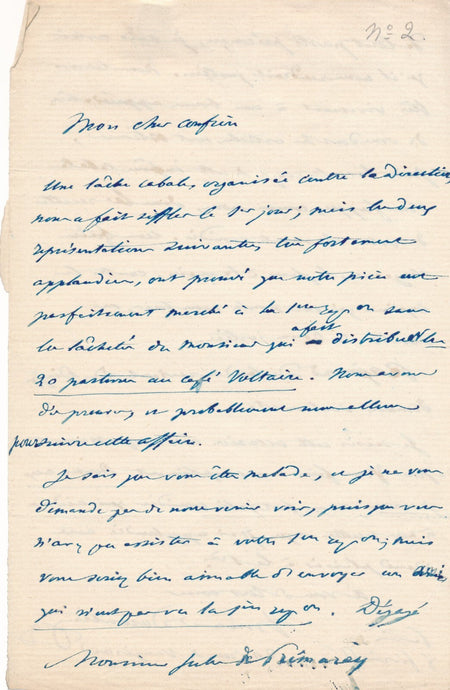 No 2.
Mon cher confrère
Une lâche cabale, organisée contre la direction,
nous a fait siffler le 1er jour ; mais les deux
représentations suivantes, très fortement
applaudies, ont prouvé que notre pièce eut
parfaitement marché à la 1ère repon sans
la lâcheté du monsieur qui a fait distribuer les
20 parterres au café Voltaire. Nous avons
des preuves, et probablement nous allons
poursuivre cette affaire.
Je sais que vous êtes malade, et je ne vous
demande pas de nous venir voir, puisque vous
n'avez pu assister à votre 1ère repon ; mais
vous seriez bien aimable d'envoyer un ami,
qui n'eut pas vu la 1ère repon. Dégagé
Monsieur Jules de Prémaray